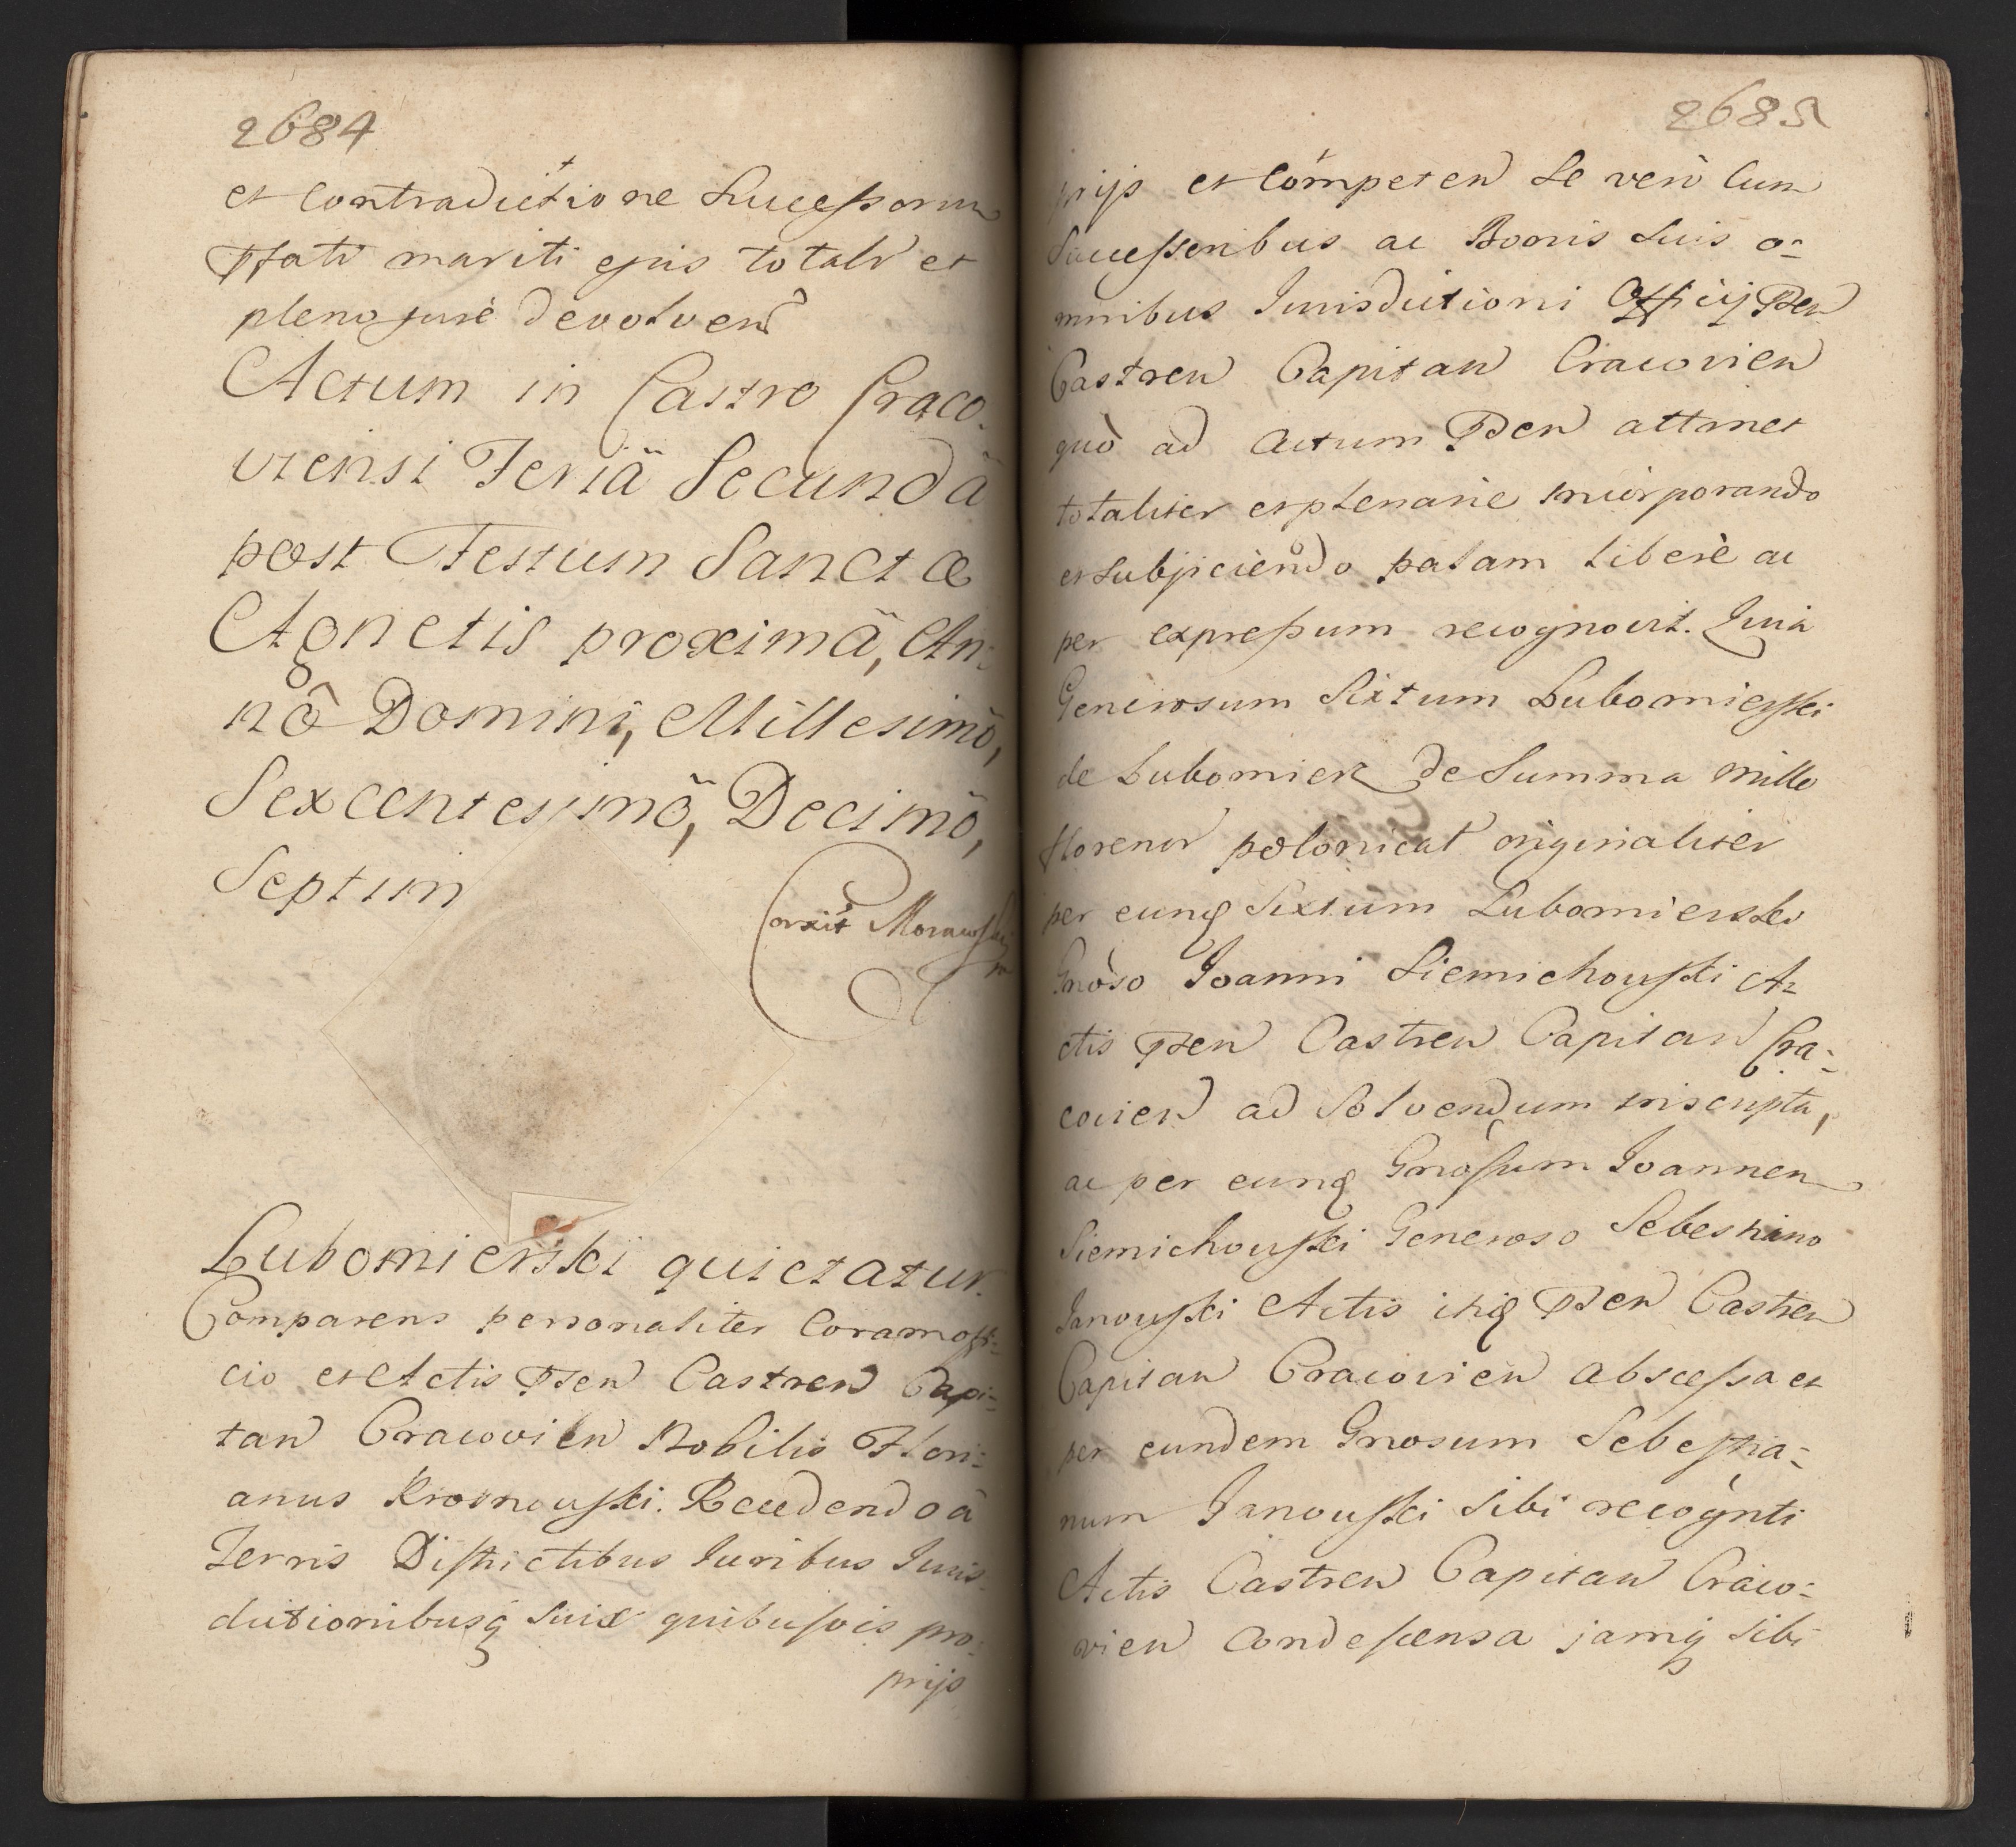 2684
et Contradictione Sucessorum
Pfati mariti ejus totalr et
pleno jure devolvend
Actum in Castro Craco-
viensi Feriâ Secundâ
post Festum Sanctæ
Agnetis proximâ, An-
nô Domini, Millesimô,
Sexcentesimô, Decimô,
Septim
Corxit Morawski
Lubomierski quietatur.
Comparens personaliter Coram offi-
cio et Actis Psen Castren Capi-
tan Cracovien Nobilis Flori-
anus Krosnowski. Recedendo â
Terris Districtibus Juribus Juris-
dictionibusq suis quibusvis pro-
prijs
2685
prijs et Competen Se verò Cum
Sucessoribus ac Bonis Suis o-
mnibus Jurisdictioni Officij Psen
Castren Capitan Cracovien
quò ad Actum Psen attinet
totaliter et plenarie incorporando
et Subjiciendo palam libere ac
per expressum recognovit. Quia
Generosum Sixtum Lubomierski
de Lubomierz de Summa mille
florenor polonical originaliter
per eunq Sixtum Lubomierski
Gnoso Joanni Siemichowski A-
ctis Psen Castren Capitan Cra-
covien ad Solvendum inscripta,
ac per eunq Gnosum Joannen
Siemichowski Generoso Sebestiano
Janowski Actis itiq Psen Castren
Capitan Cracovien abscessa et
per eundem Gnosum Sebestia-
num Janowski Sibi recognti
Actis Castren Capitan Craco-
vien Condescensa jamq Sibi